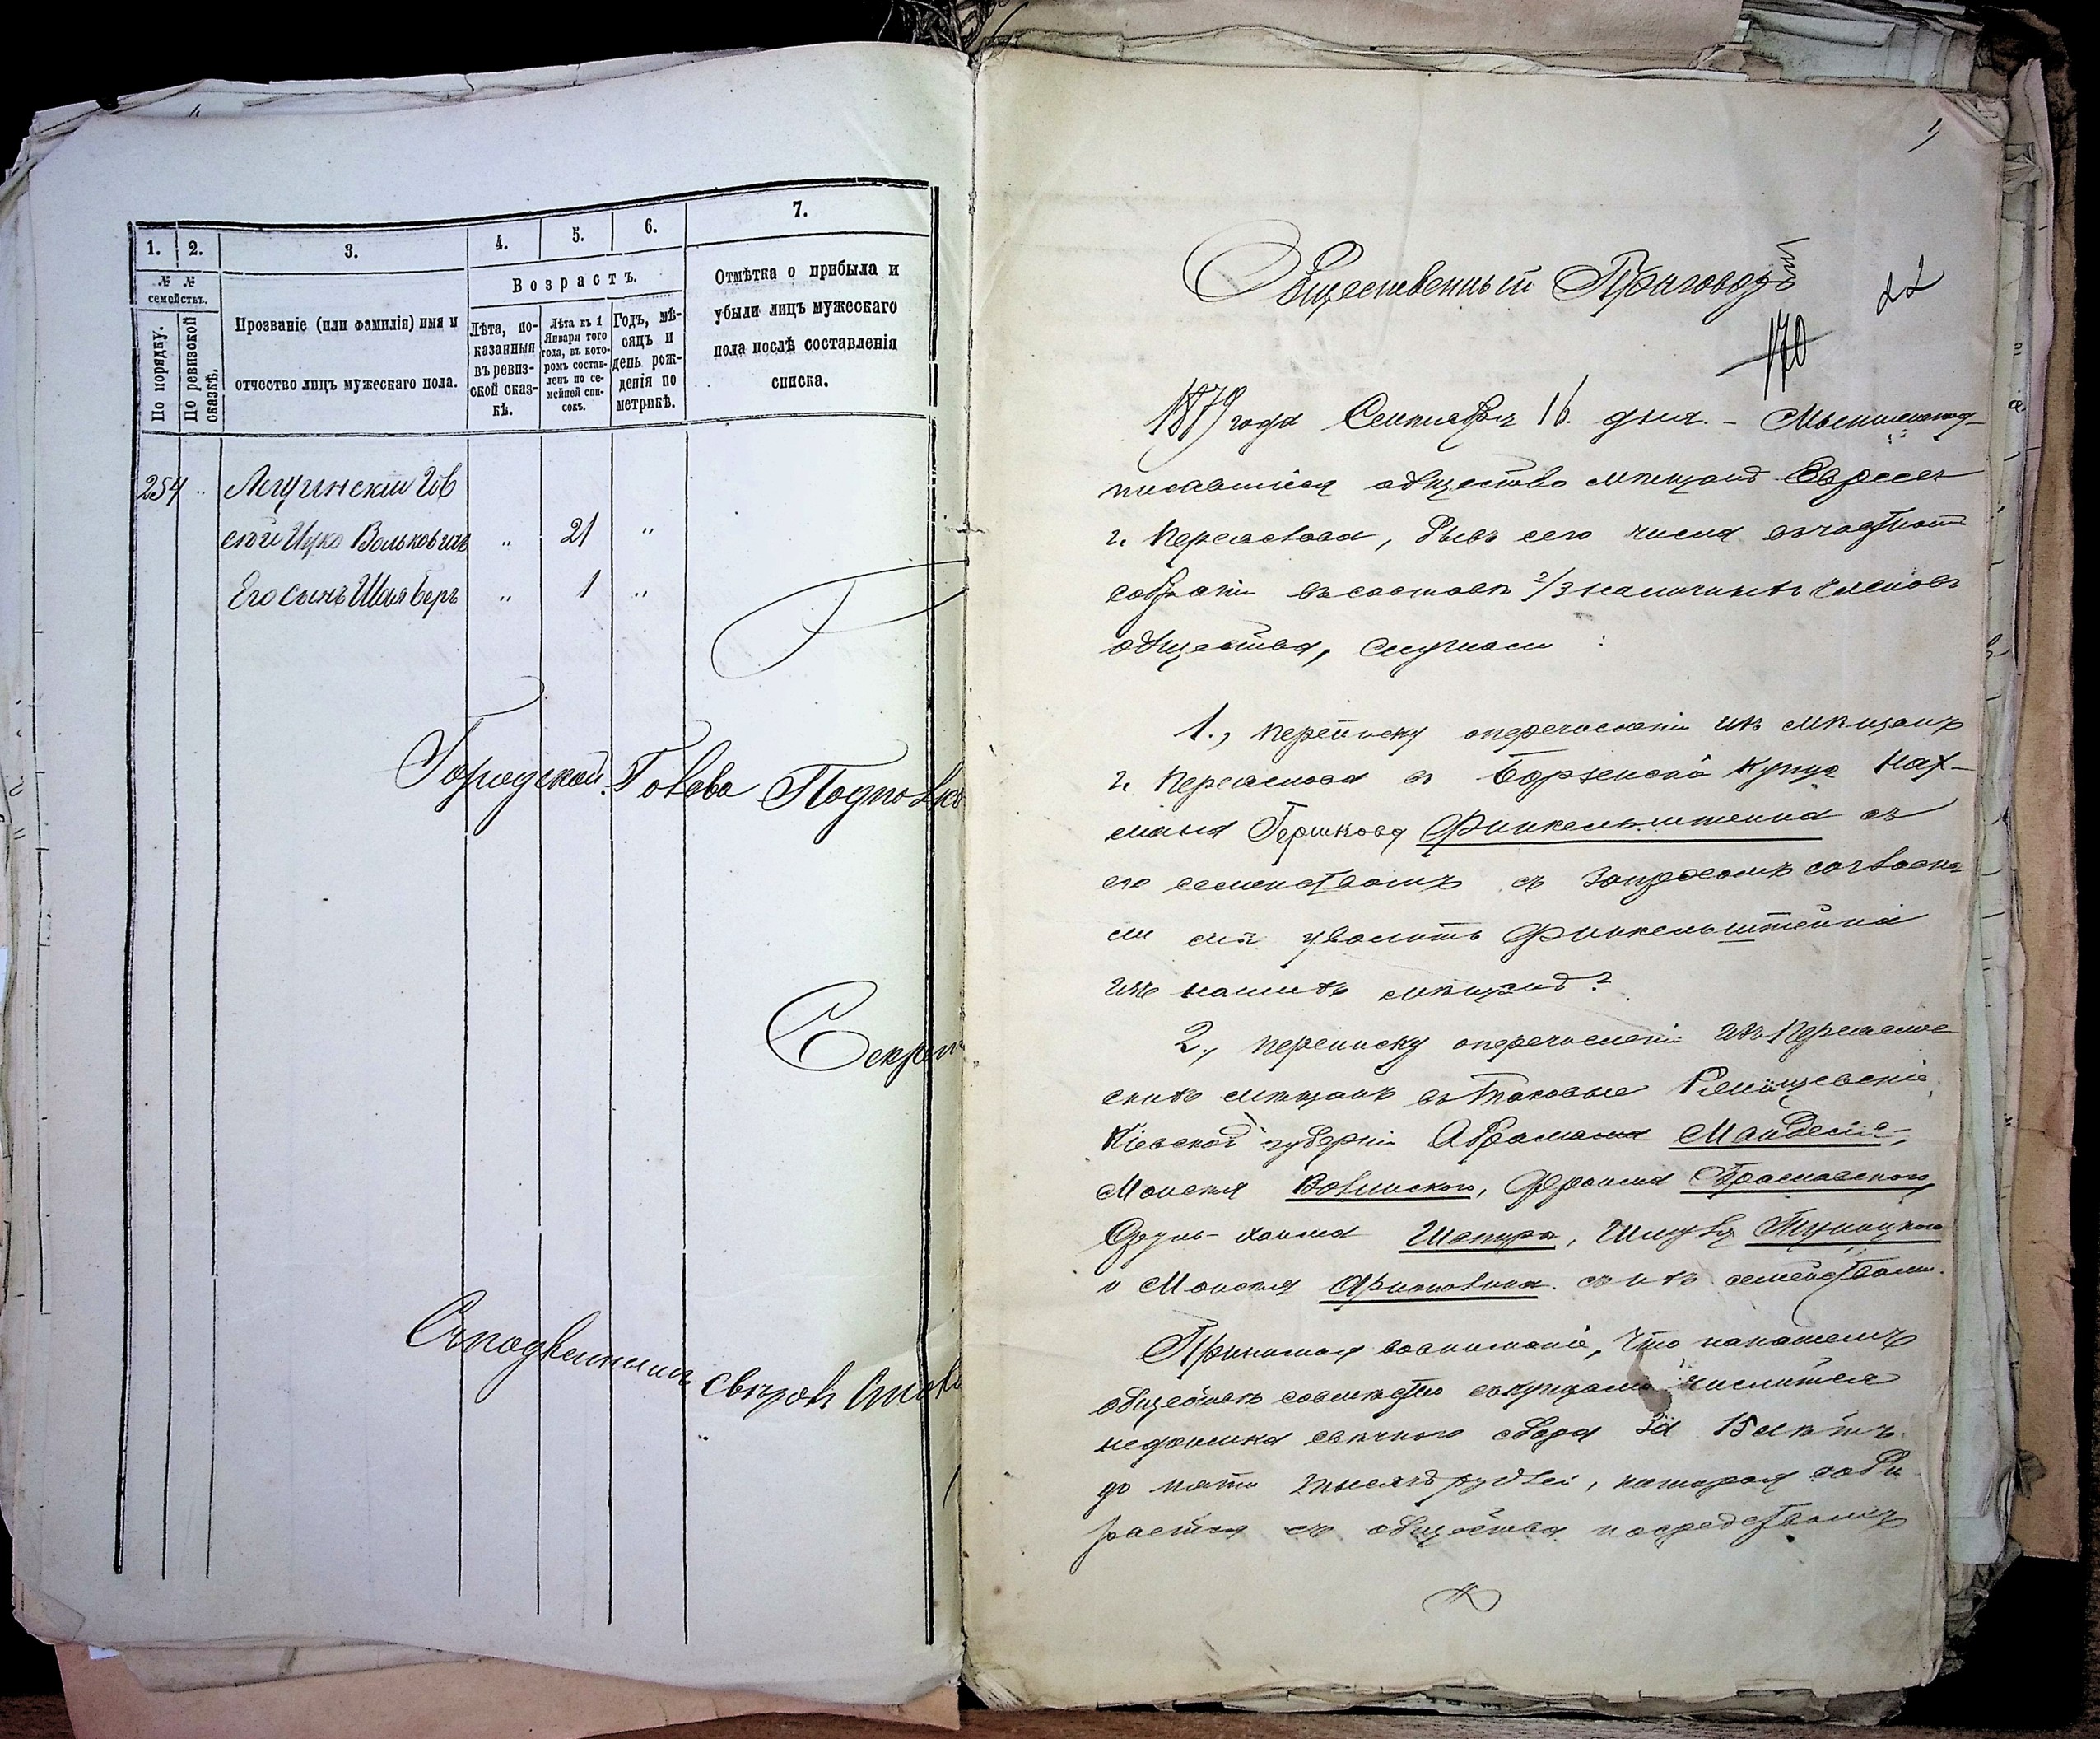 1.
2.
3.
4.
5.
6.
7.
№ №
семействъ.
По порядку.
По ревизской сказкѣ.
Прозваніе (или фамилія) имя и
отчество лицъ мужескаго пола.
Возрастъ.
Лѣта, по-
казанныя
въ ревиз-
ской сказ-
кѣ.
Лѣта къ 1
Января того
года, въ кото-
ромъ состав-
ленъ по се-
мейный спи-
сокъ.
Годъ, мѣ-
сяцъ и
день рож-
денія по
метрикѣ.
Отмѣтка о прибыла и
убыли лицъ мужескаго
пола послѣ составленія
списка.
254 "
сѣй Ицко Вольковичъ " 21 "
Его сынъ Шая беръ " 1 "
Городской Голова
Секрет
Съ подлиннымъ свѣрялъ
Общественный Приговоръ
22
170
1879 года Сентября 16 дня. – Мы нижепод-
писавшіеся общество мѣщанъ Евреевъ
г. Переяслава, бывъ сего числа въ частномъ
собраніи въ составѣ 2/3 наличныхъ членовъ
общества, слушали :
1., переписку о перечисленіи изъ мѣщанъ
г. Переяслава въ Борзенскіе купцы Нах-
мана Гершкова Финкельштейна съ
его семействомъ съ запросомъ согласны
ли мы уволить Финкельштейна
изъ нашихъ мѣщанъ?
2., переписку о перечисленіи изъ Переяслав
скихъ мѣщанъ въ таковые
Кіевской губерніи Абрамана
Мошка Волынскаго, Фроима Браславскаго
Хаима Шапиры, Шлубы
и Мошка съ ихъ семействами.
Принимая во вниманіе, что на нашемъ
обществѣ совмѣстно съ купцами числится
недоимка свѣчного сбора за 15 лѣтъ
до пяти тысячъ рублей, которая соби
рается съ общества посредствомъ